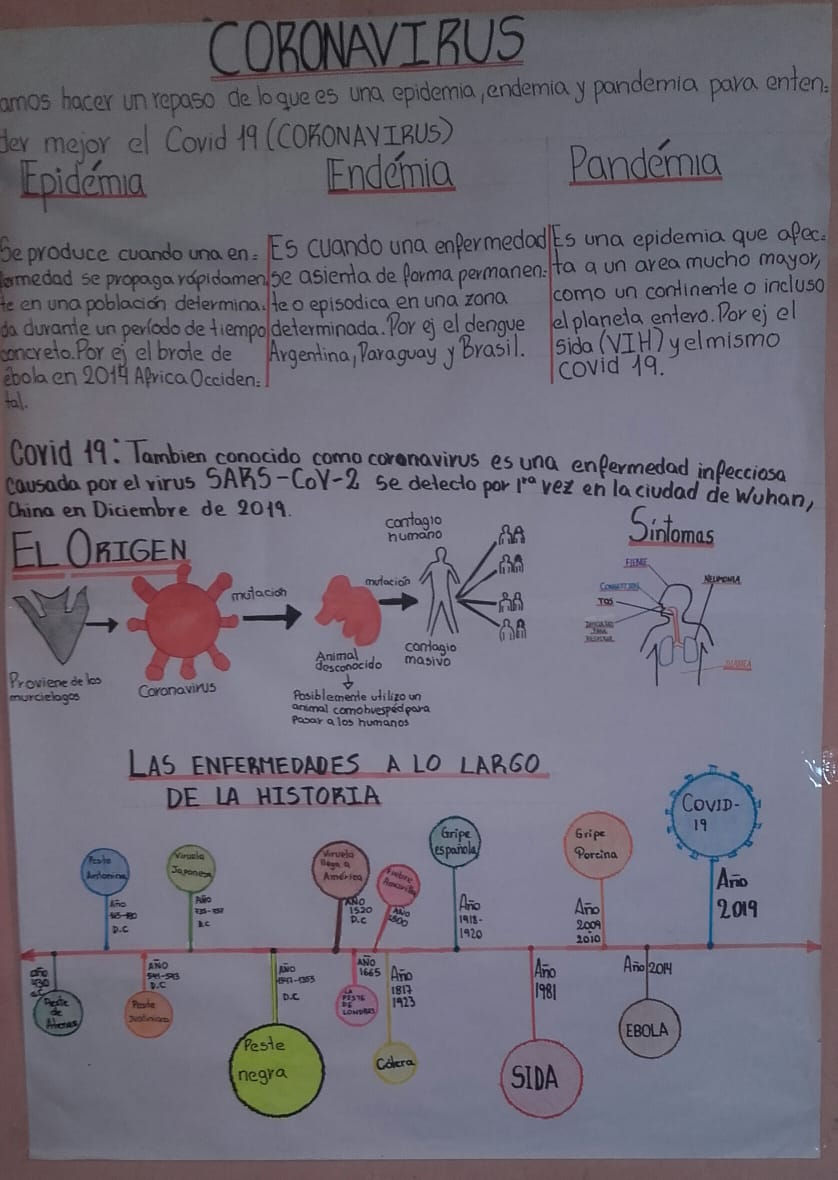 CORONAVIRUS
amos hacer un repaso de lo que es una epidemia, endemia y pandemia para enten=
der mejor el Covid 19 (CORONAVIRUS)
Epidémia
Se produce cuando una en=
fermedad se propaga rápidamen=
te en una población determina=
da durante un período de tiempo
concreto. Por ej el brote de
ébola en 2014 Africa Occiden=
tal.
Endémia
Es cuando una enfermedad
se asienta de forma permanen=
te o episodica en una zona
determinada. Por ej el dengue
Argentina, Paraguay y Brasil.
Pandémia
Es una epidemia que afec=
ta a un area mucho mayor,
como un continente o incluso
el planeta entero. Por ej el
sida (VIH) y el mismo
covid 19.
Covid 19: Tambien conocido como coronavirus es una enfermedad infecciosa
causada por el virus SARS-CoV-2 se detecto por 1ra vez en la ciudad de Wuhan,
China en Diciembre de 2019.
EL ORIGEN
Proviene de los
murcielagos
Coronavirus
mutación
Animal
desconocido
Posiblemente utilizo un
animal como huesped para
pasar a los humanos
mutación
contagio
humano
contagio
masivo
Síntomas
FIEBRE
CONGESTION
TOS
NEUMONIA
DIARREA
LAS ENFERMEDADES A LO LARGO
DE LA HISTORIA
Peste
Antonina
Año
D.C
Viruela
Japonesa
Año
735-737
D.C
Viruela
llega a
América
AÑO
1520
D.C
Fiebre
Amarilla
AÑO
Gripe
española
Año
1918-
1920
Gripe
Porcina
Año
2009
2010
COVID-
19
Año
2019
año
430
Peste
de
Atenas
AÑO
541-543
D.C
Peste
Justiniano
AÑO
1347-1353
D.C
Peste
negra
AÑO
1665
LA
PESTE
DE
LONDRES
Año
1817
1923
Cólera
Año
1981
SIDA
Año 2014
EBOLA